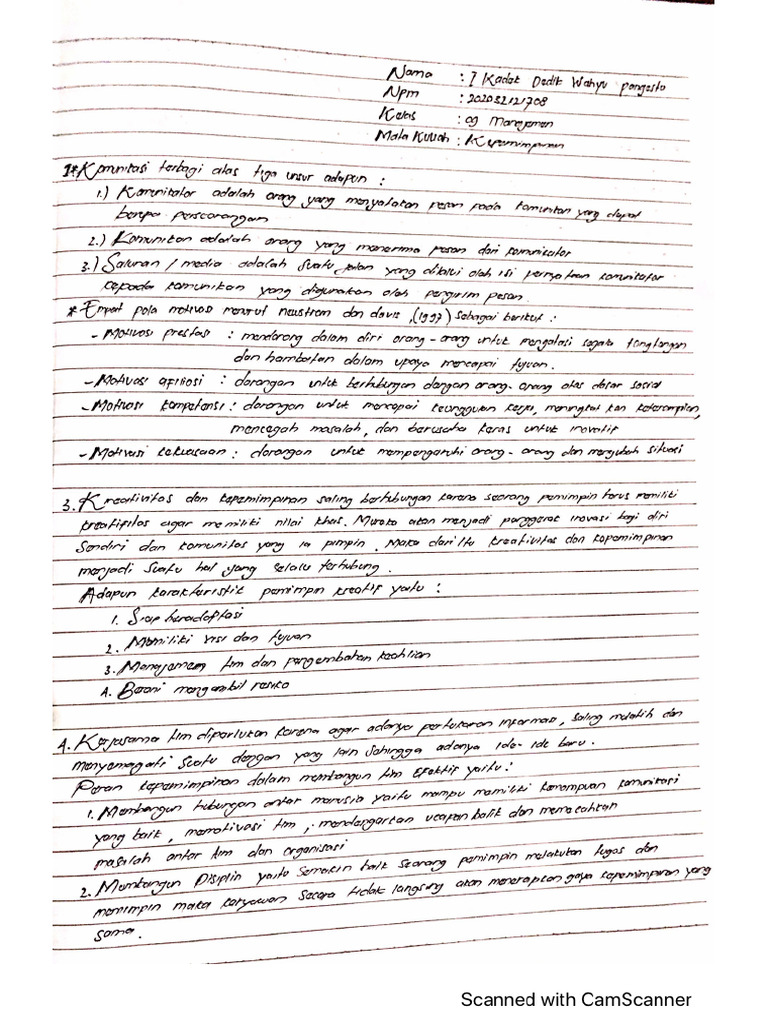 Nama : I Kadek Dedik Wahyu pangestu
Npm : 202032121708
Kelas : 09 Manajemen
Mata Kuliah : Kepemimpinan
1* Komunikasi terbagi atas tiga unsur adapun :
1.) Komunikator adalah orang yang menyatakan pesan pada komunikan yang dapat
berupa perseorangan
2.) Komunikan adalah orang yang menerima pesan dari komunikator
3.) Saluran / media adalah suatu jalan yang dilalui oleh isi pernyataan komunikator
kepada komunikan yang digunakan oleh pengirim pesan.
* Empat pola motivasi menurut newstrom dan davis, (1997) sebagai berikut :
- Motivasi prestasi : mendorong dalam diri orang-orang untuk mengatasi segala tantangan
dan hambatan dalam upaya mencapai tujuan.
- Motivasi afiliasi : dorongan untuk berhubungan dengan orang-orang atas dasar social
- Motivasi kompetensi : dorongan untuk mencapai keunggulan kerja, meningkatkan keterampilan,
mencegah masalah, dan berusaha keras untuk inovatif
- Motivasi kekuasaan : dorongan untuk mempengaruhi orang-orang dan mengubah situasi
3. Kreativitas dan kepemimpinan saling berhubungan karena seorang pemimpin harus memiliki
kreatifitas agar memiliki nilai khas. Mereka akan menjadi penggerak inovasi bagi diri
sendiri dan komunitas yang ia pimpin. Maka dari itu kreativitas dan kepemimpinan
menjadi suatu hal yang selalu terhubung.
Adapun karakteristik pemimpin kreatif yaitu :
1. Siap beradaptasi
2. Memiliki visi dan tujuan
3. Manajemen tim dan pengembatan keahlian
4. Berani mengambil resiko
4. Kerjasama tim diperlukan karena agar adanya pertukaran informasi, saling melatih dan
menyemagati suatu dengan yang lain sehingga adanya ide-ide baru.
Peran kepemimpinan dalam membangun tim efektif yaitu :
1. Membangun hubungan antar manusia yaitu mampu memiliki kemampuan komunikasi
yang baik, memotivasi tim, mendengarkan ucapan balik dan memecahkan
masalah antar tim dan organisasi
2. Membangun Disiplin yaitu semakin baik seorang pemimpin melakukan tugas dan
memimpin maka karyawan secara tidak langsung akan menerapkan gaya kepemimpinan yang
sama.
Scanned with CamScanner